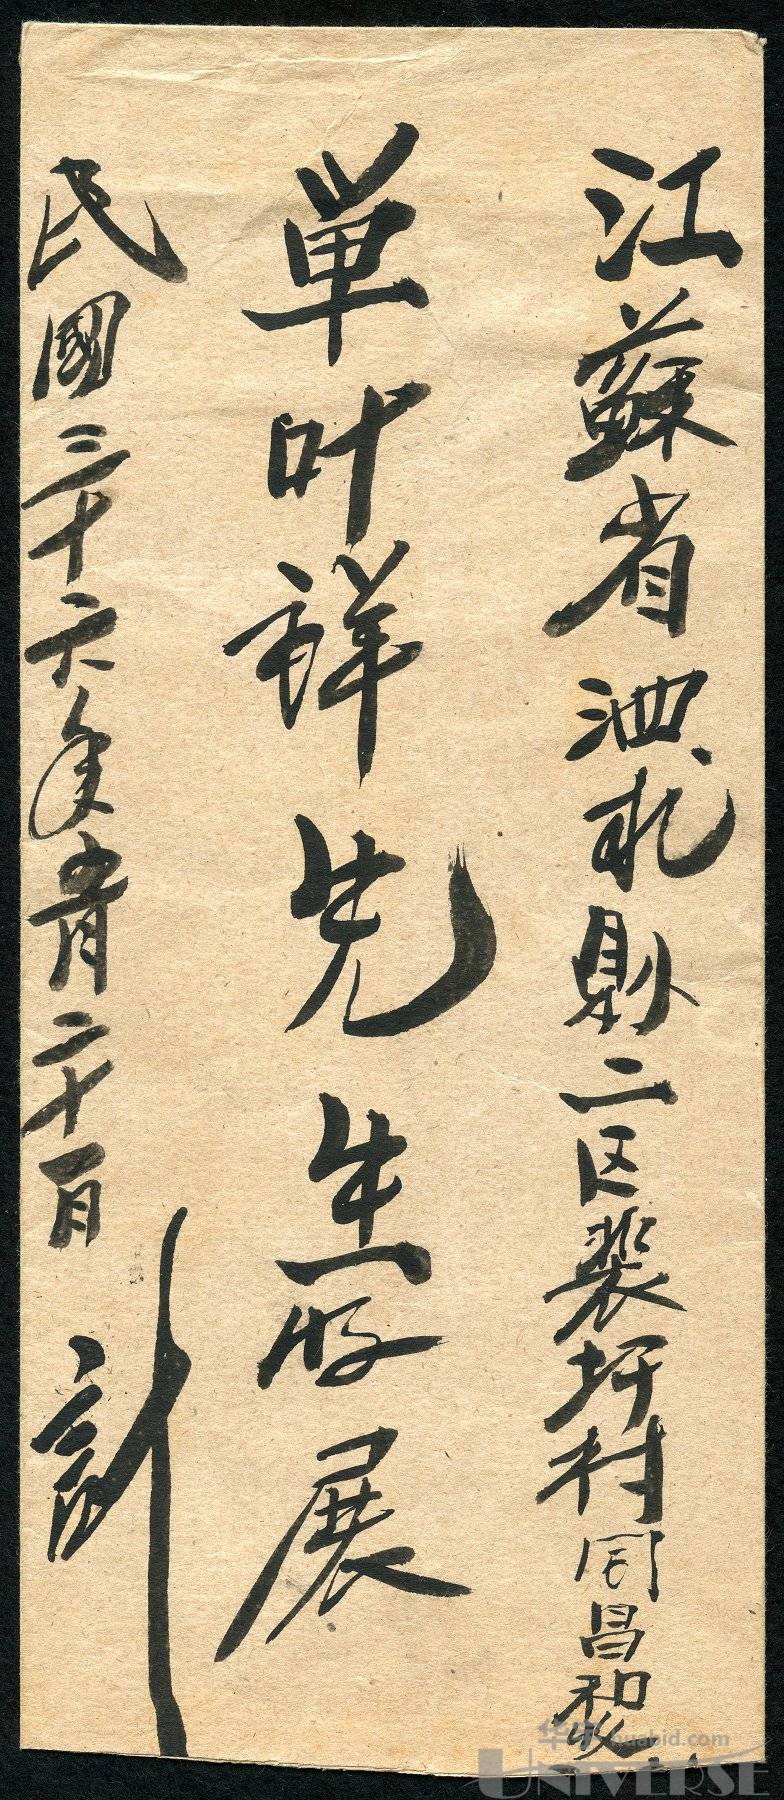 江蘇省泗札則二区裴圩村同昌
单叶祥先生收展
民國三十六年五月二十一日
华宇 huabid.com
UNIVERSE